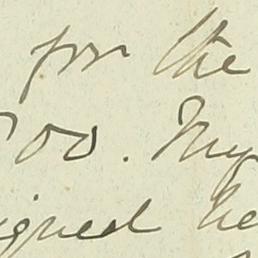 for the
00. My
igned he